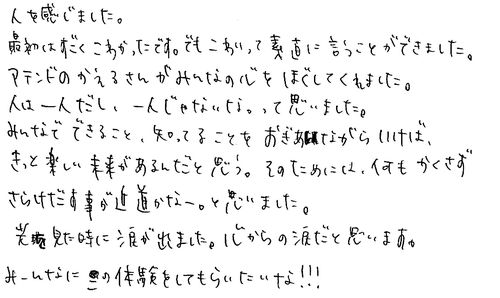 人を感じました。
最初はすごくこわかったです。でもこわいって素直に言うことができました。
アテンドのかえるさんがみんなの心をほぐしてくれました。
人は一人だし、一人じゃないな。って思いました。
みんなでできること、知ってることをおぎあいながらいけば、
きっと楽しい未来があるんだと思う。そのためには、何もかくさず
さらけだす事が近道かなー。と思いました。
光を見た時に涙が出ました。心からの涙だと思います。
みーんなにこの体験をしてもらいたいな!!!